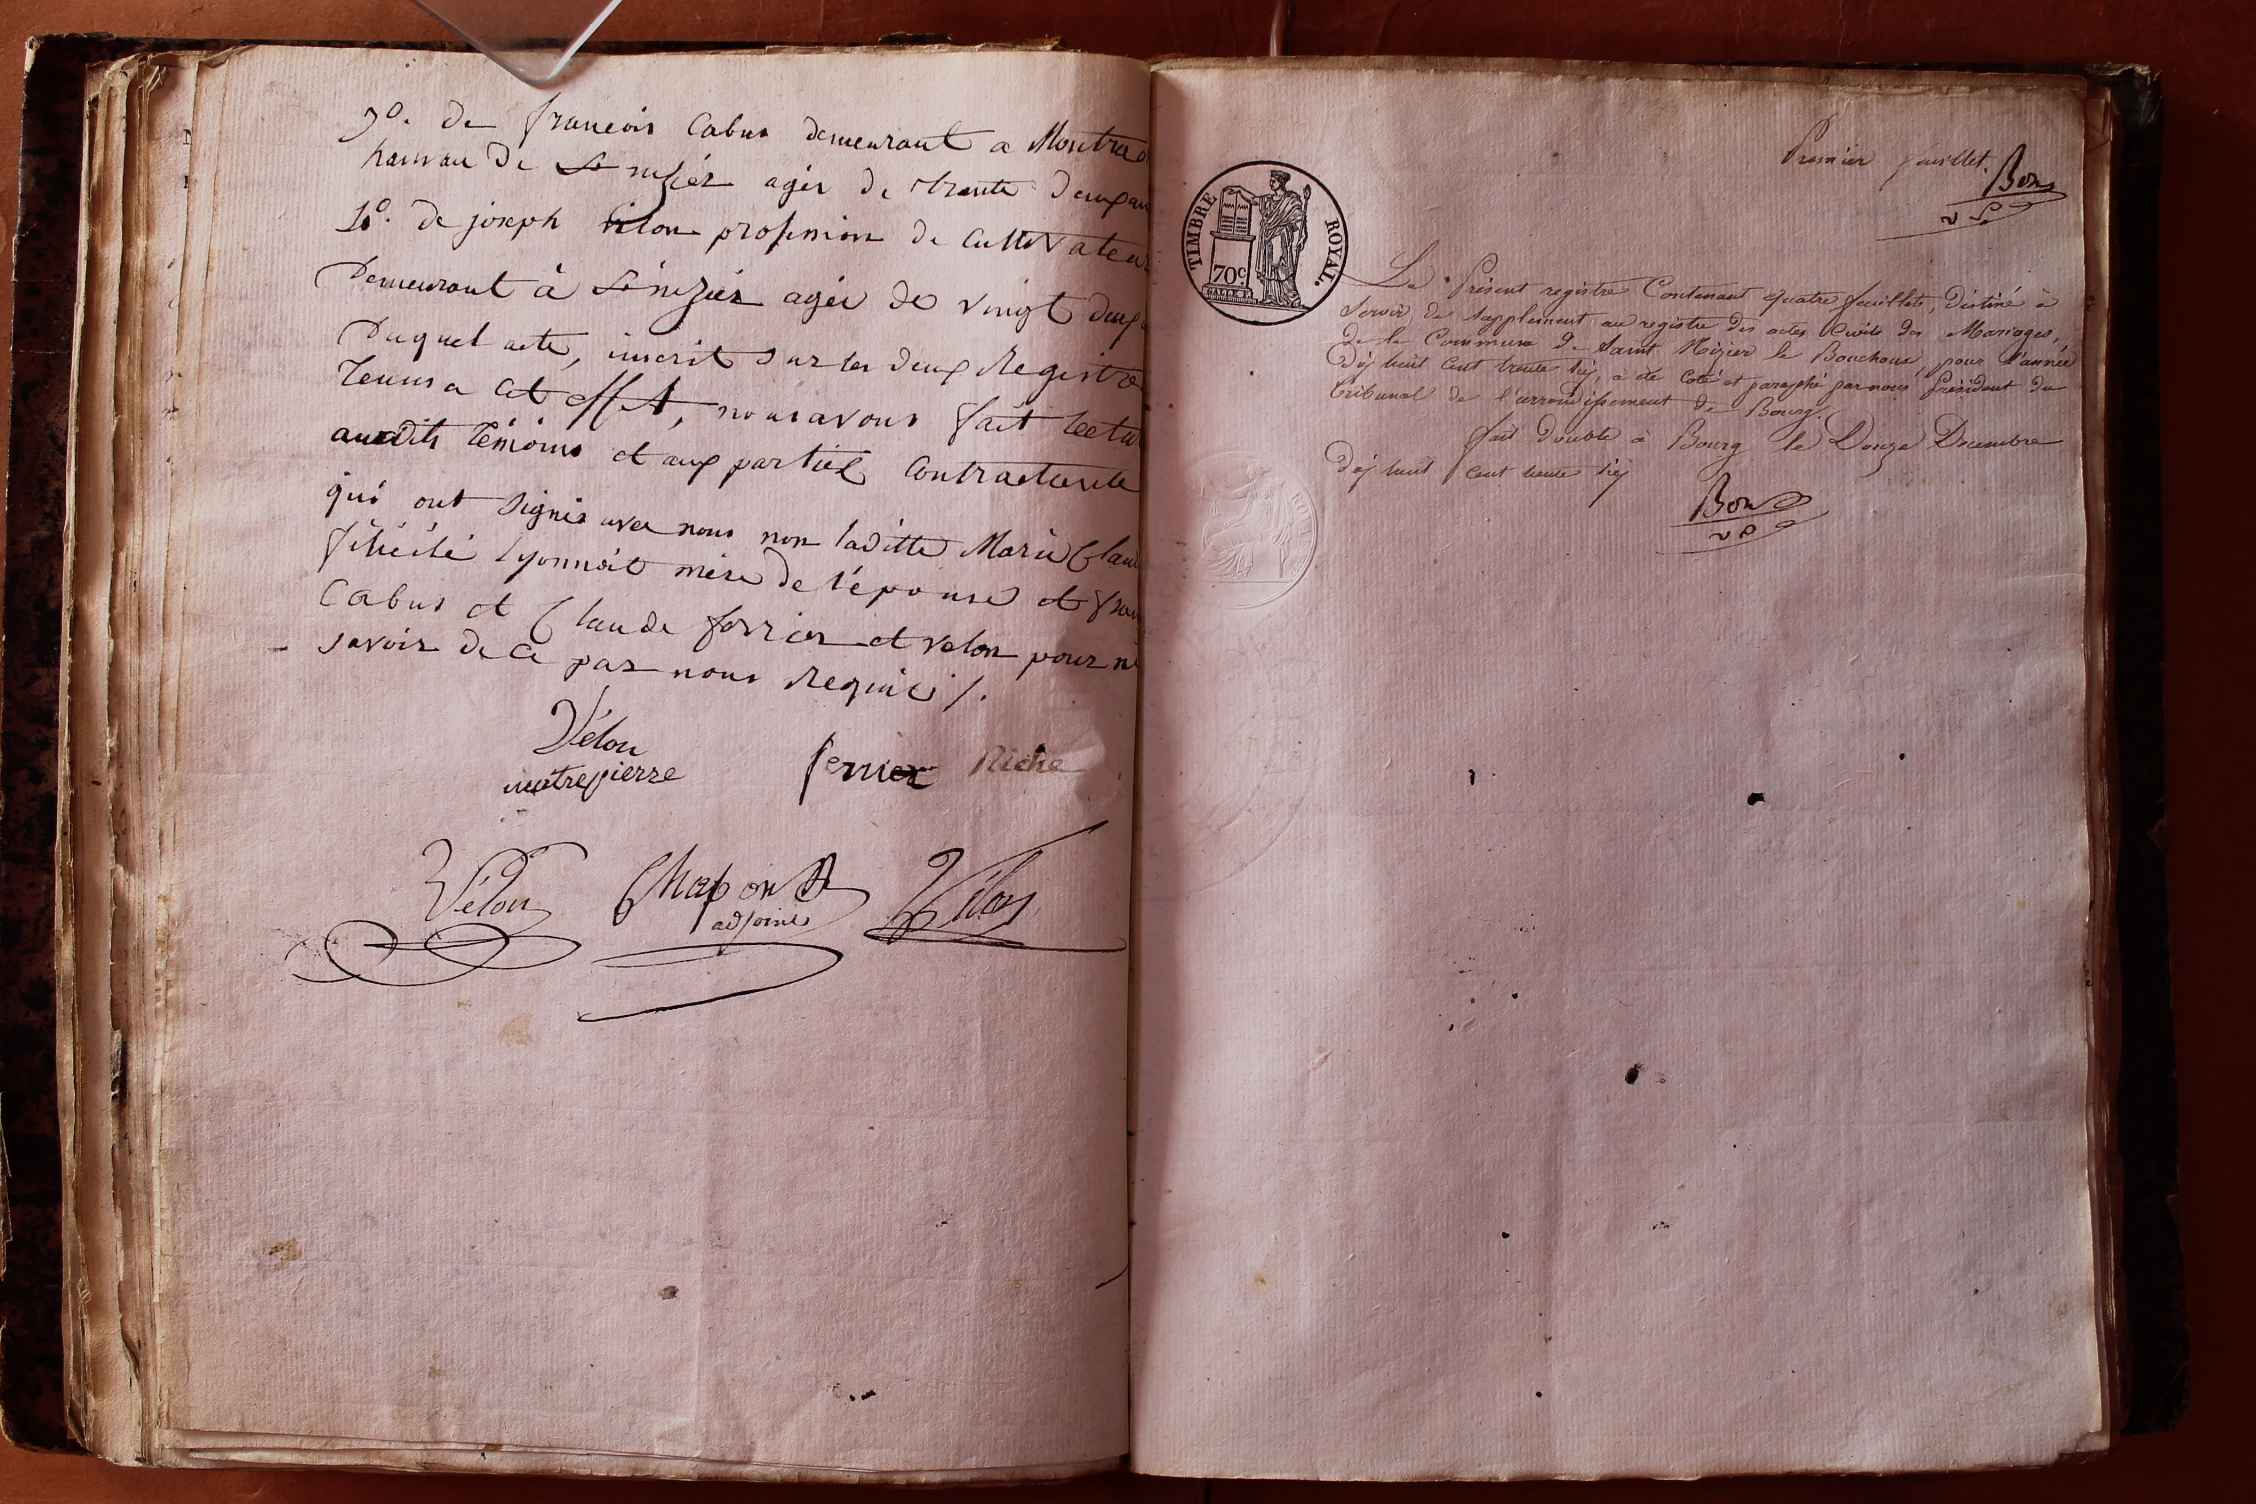 3º. de francois Cabus demeurant a Montra
hamau de St nizier agés de trente deux an
4º. de joseph vélon profession de cultivateu
Demeurant à St nizier agée de vingt deux
Duquel acte, inscrit sur les deux Registre
Tenus a cet effet, nous avons fait lectu
auxdits témoins et aux parties contractente
qui ont signés avec nous non laditte Marie Clau
félicité lyonnait mère de l'épouse et fran
Cabus et Claude ferrier et velon pour ne
savoir de ce par nous Requis /.
Vélon
ferrier Riche
Vélon
Chapon
adjoint
Vélon
Premier feuillet.
Bon
v P
TIMBRE ROYAL.
70 c.
Le Présent registre Contenant quatre feuillets, destiné à
Servir de Supplement au registre des actes Civils des Mariages,
de la Commune de Saint Nizier le Bouchoux, pour l'année
Dix huit Cent trente six, a été coté et paraphé par nous Président du
tribunal de l'arrondissement de Bourg.
fait double à Bourg le Douze Decembre
Dix huit cent trente six
Bon
v P